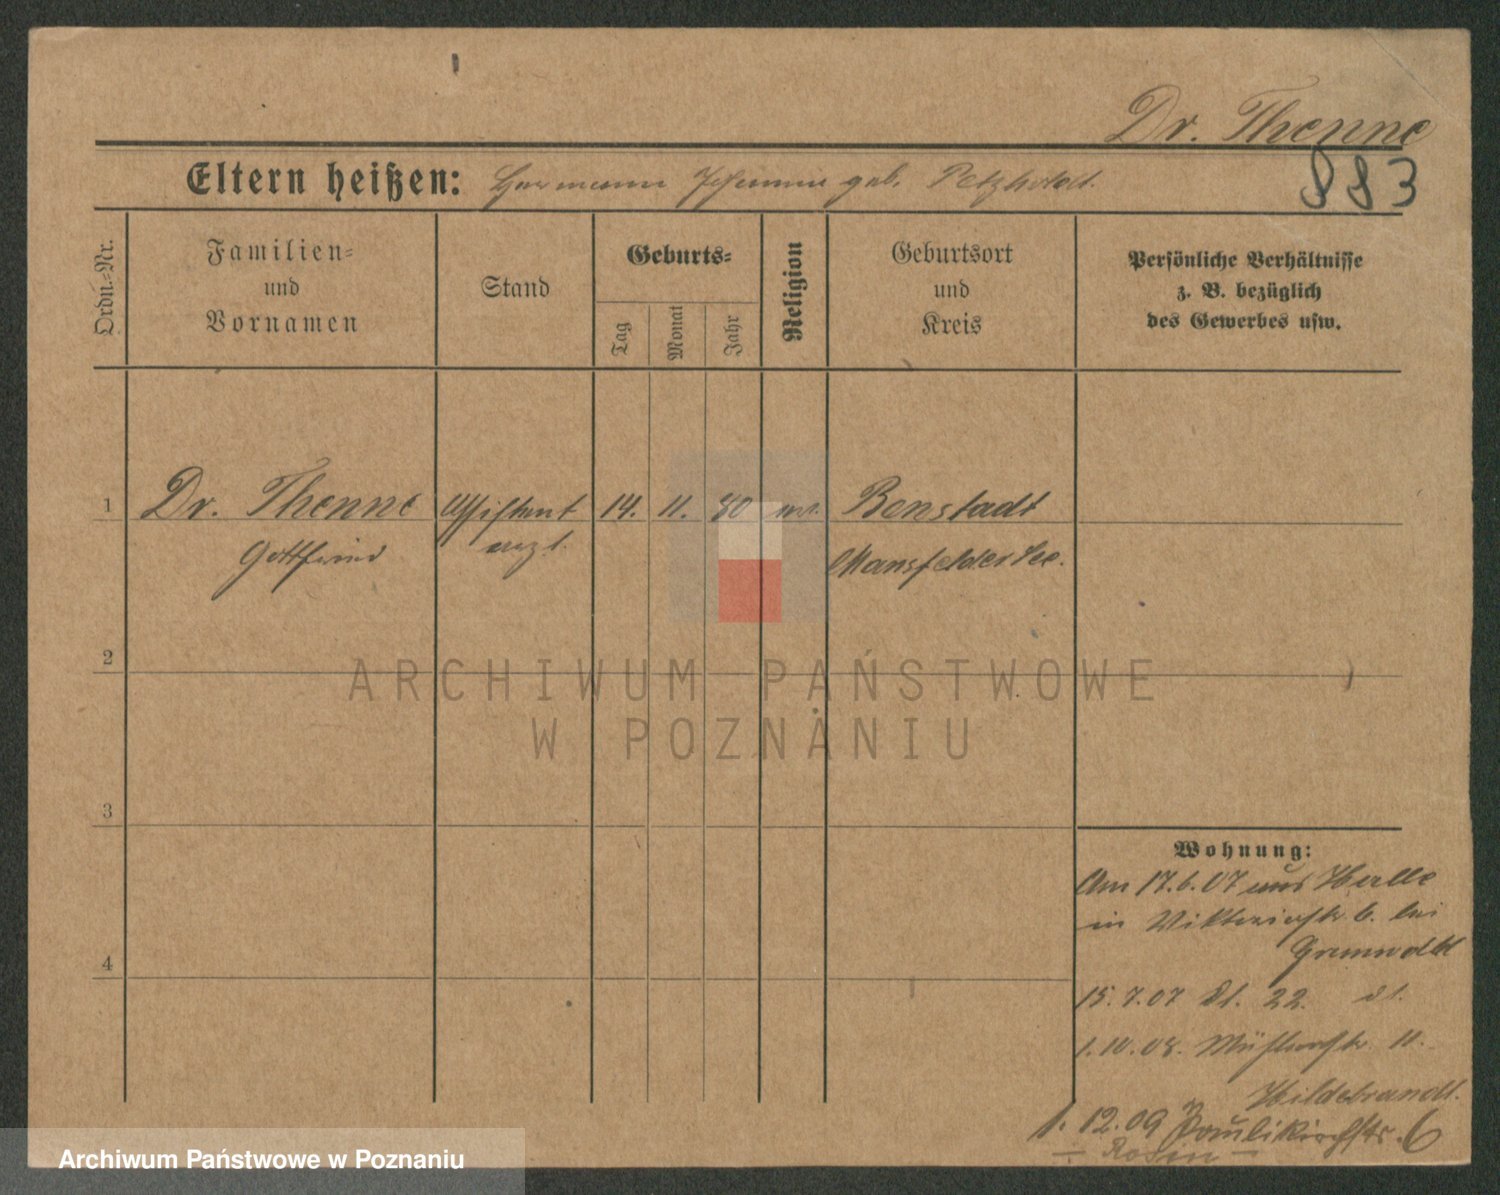 Dr. Thenne
883
Eltern heißen: Hermann Johanna geb. Petzholdt.
Ordn.-Nr.
Familien-
und
Vornamen
Stand
Geburts-
Tag
Monat
Jahr
Religion
Geburtsort
und
Kreis
Persönliche Verhältnisse
z. B. bezüglich
des Gewerbes usw.
1 Dr. Thenne Assistent 14. 11. 80 Benstadt
Gottfried arzt. Mansfelder See.
2
ARCHIWUM PAŃSTWOWE
W POZNANIU
3
Wohnung:
Am 17.6.07 aus Halle
in Viktoriastr. 6. bei
Grunwald
15.7.07 22.
1.10.08. Mühlenstr. 11.
Hildebrandt.
1.12.09 Paulikirchstr. 6
Rosen
4
Archiwum Państwowe w Poznaniu